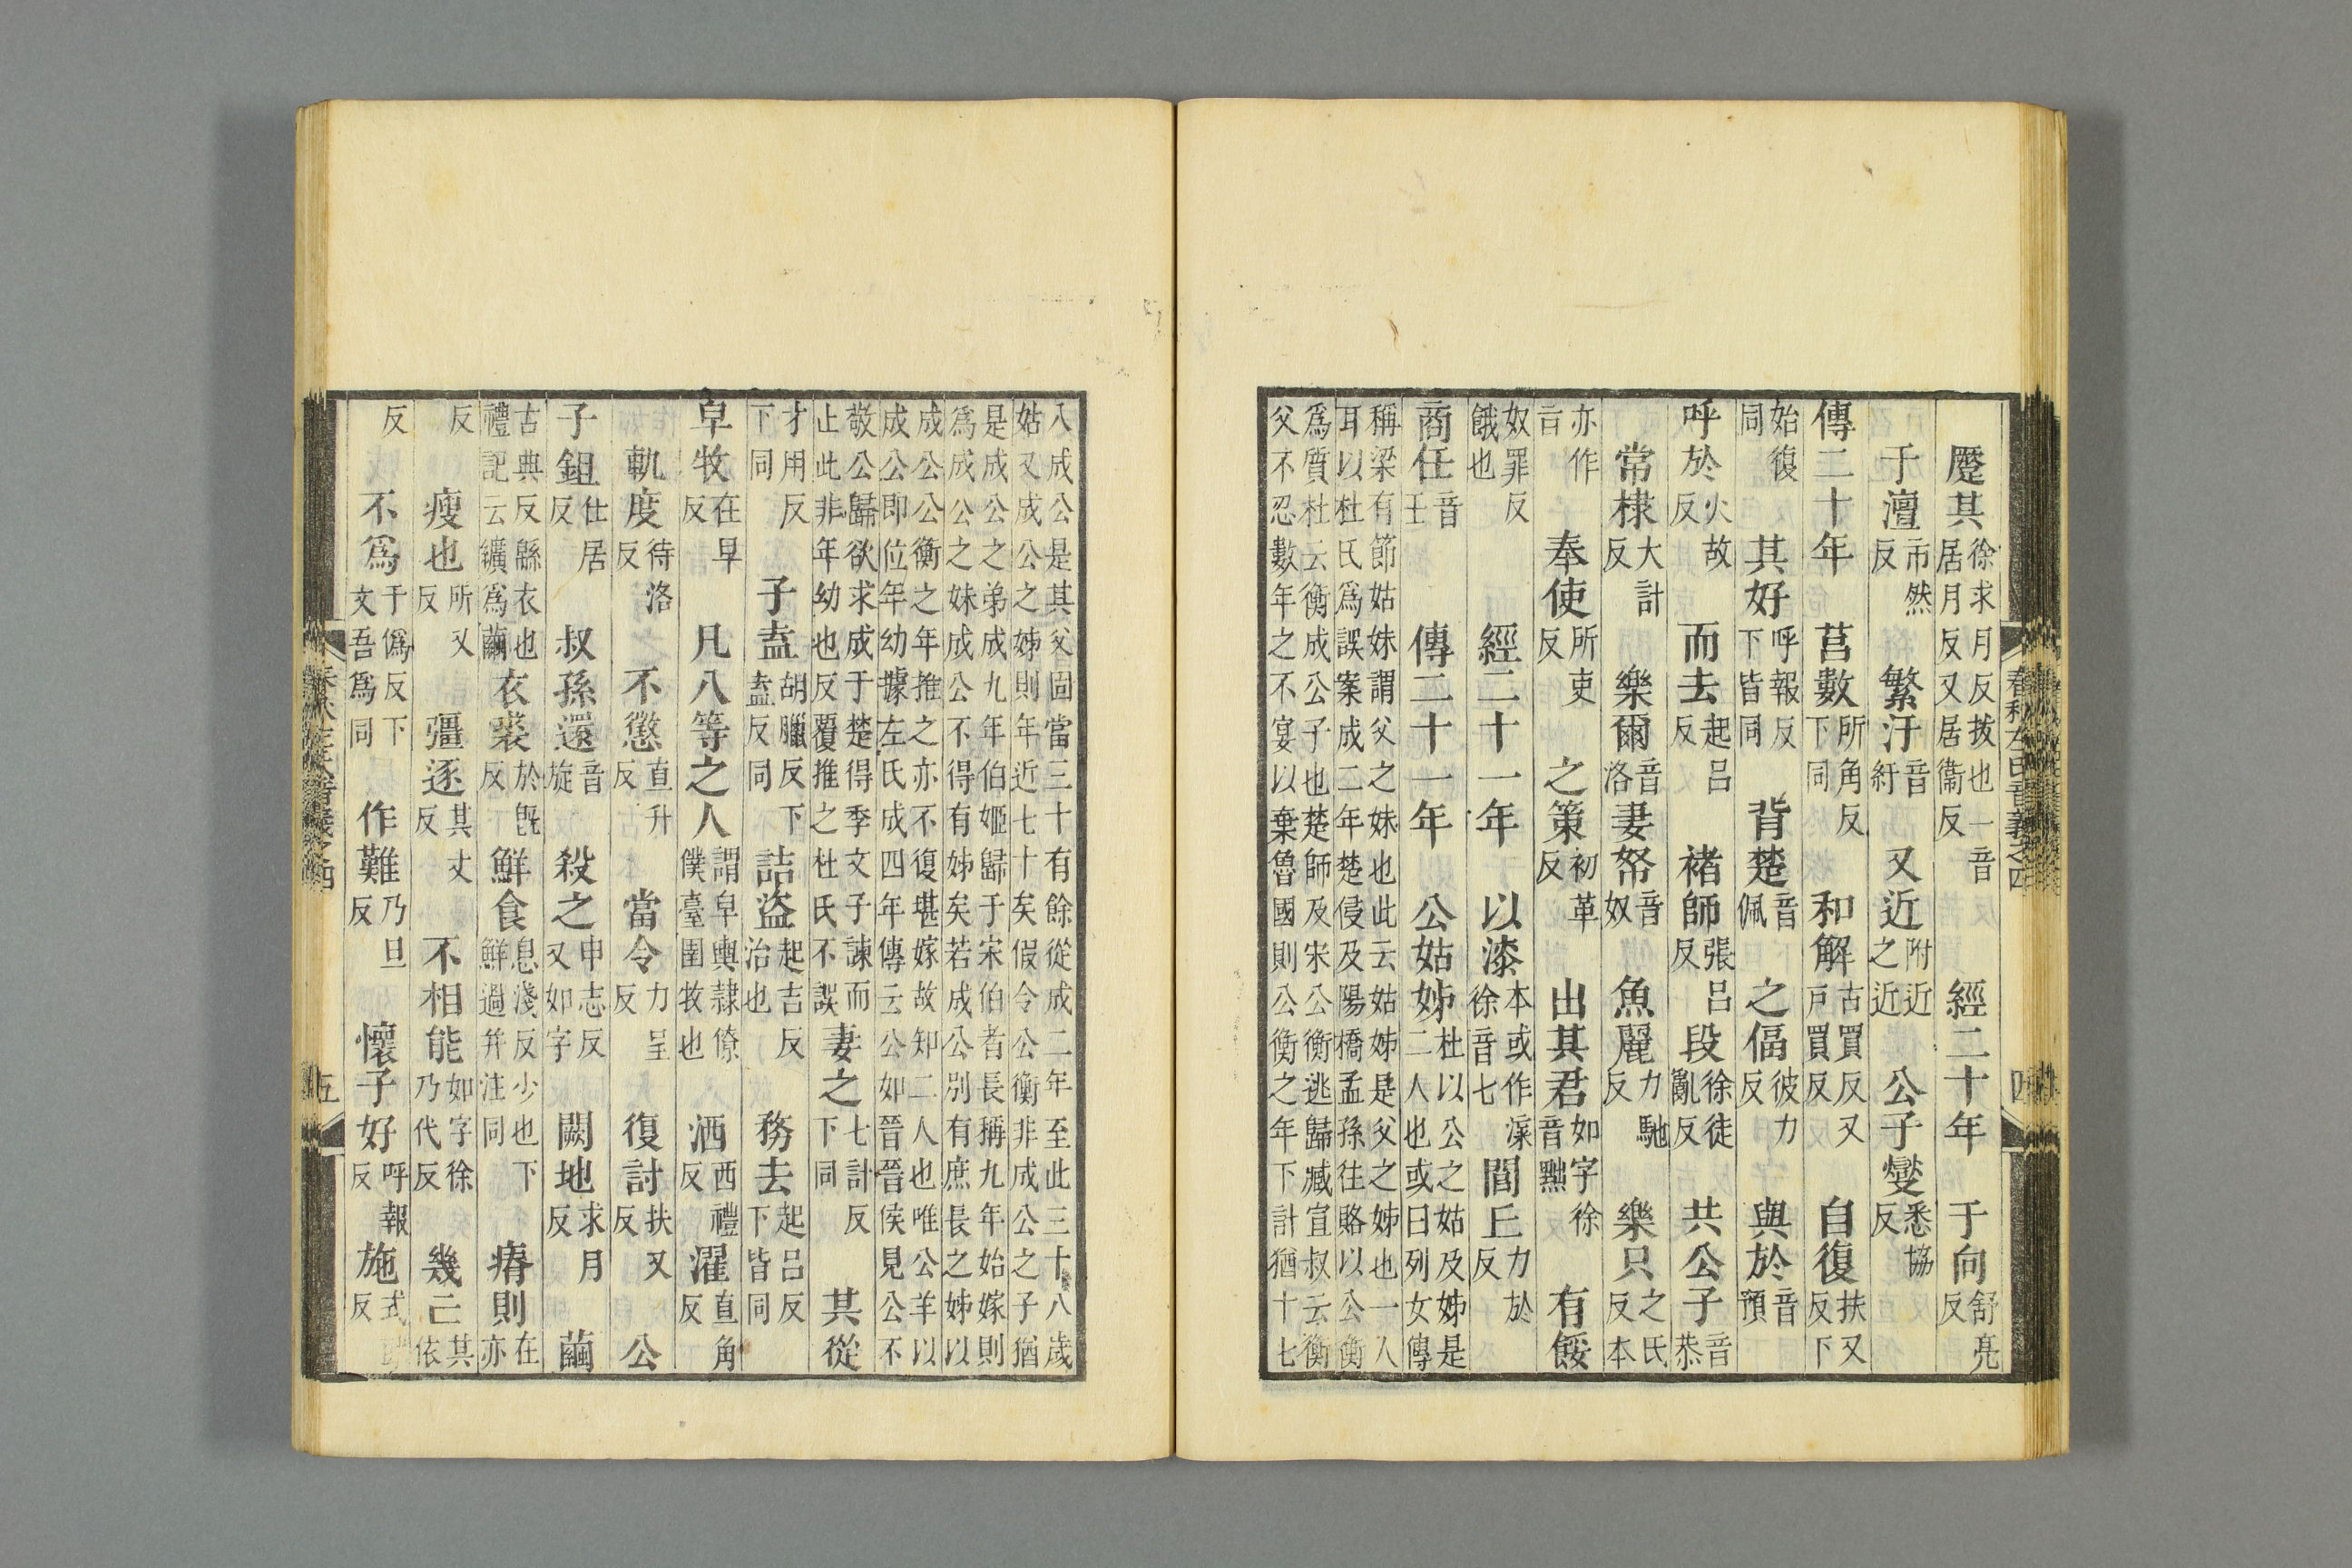 蹷其徐求月反拔也一音居月反又居衞反 經二十年 于向舒亮反
于澶市然反 繁汙音紆 又近附近之近 公子燮悉協反
傳二十年 莒數所角反下同 和解古買反又戶買反 自復扶又反下
始復同 其好呼報反下皆同 背楚音佩 之偪彼力反 與於音預
呼於火故反 而去起呂反 褚師張呂反 段徐徒亂反 共公子音恭
常棣大計反 樂爾音洛 妻帑音奴 魚麗力馳反 樂只之氏反本
亦作旨 奉使所吏反 之策初革反 出其君如字徐音黜 有餒
奴罪反餓也 經二十一年 以漆本或作淶徐音七 閭丘力於反
商任音壬 傳二十一年 公姑姊杜以公之姑及姊是二人也或曰列女傳
稱梁有節姑妹謂父之妹也此云姑姊是父之姊也一人
耳以杜氏爲誤案成二年楚侵及陽橋孟孫往賂以公衡
爲質杜云衡成公子也楚師及宋公衡逃歸臧宣叔云衡
父不忍數年之不宴以棄魯國則公衡之年下計猶十七
春秋左氏音義之四 四
八成公是其父固當三十有餘從成二年至此三十八歲
姑又成公之姊則年近七十矣假令公衡非成公之子猶
是成公之弟成九年伯姬歸于宋伯者長稱九年始嫁則
爲成公之妹成公不得有姊矣若成公別有庶長之姊以
成公公衡之年推之亦不復堪嫁故知二人也唯公羊以
成公即位年幼據左氏成四年傳云公如晉晉侯見公不
敬公歸欲求成于楚得季文子諫而止此非年幼也反覆推之杜氏不誤 妻之七計反下同 其從
才用反下同 子盍胡臘反下盍反同 詰盜起吉反治也 務去起呂反下皆同
皁牧在早反 凡八等之人謂皁輿隷僚僕臺圉牧也 洒西禮反 濯直角反
軌度待洛反 不懲直升反 當令力呈反 復討扶又反 公
子鉏仕居反 叔孫還音旋 殺之申志反又如字 闕地求月反 繭
古典反緜衣也禮記云纊爲繭 衣裘於旣反 鮮食息淺反少也下鮮過幷注同 瘠則在亦
反 瘦也所又反 彊逐其丈反 不相能如字徐乃代反 幾亡其依
反 不爲于僞反下文吾爲同 作難乃旦反 懷子好呼報反 施式豉反
五